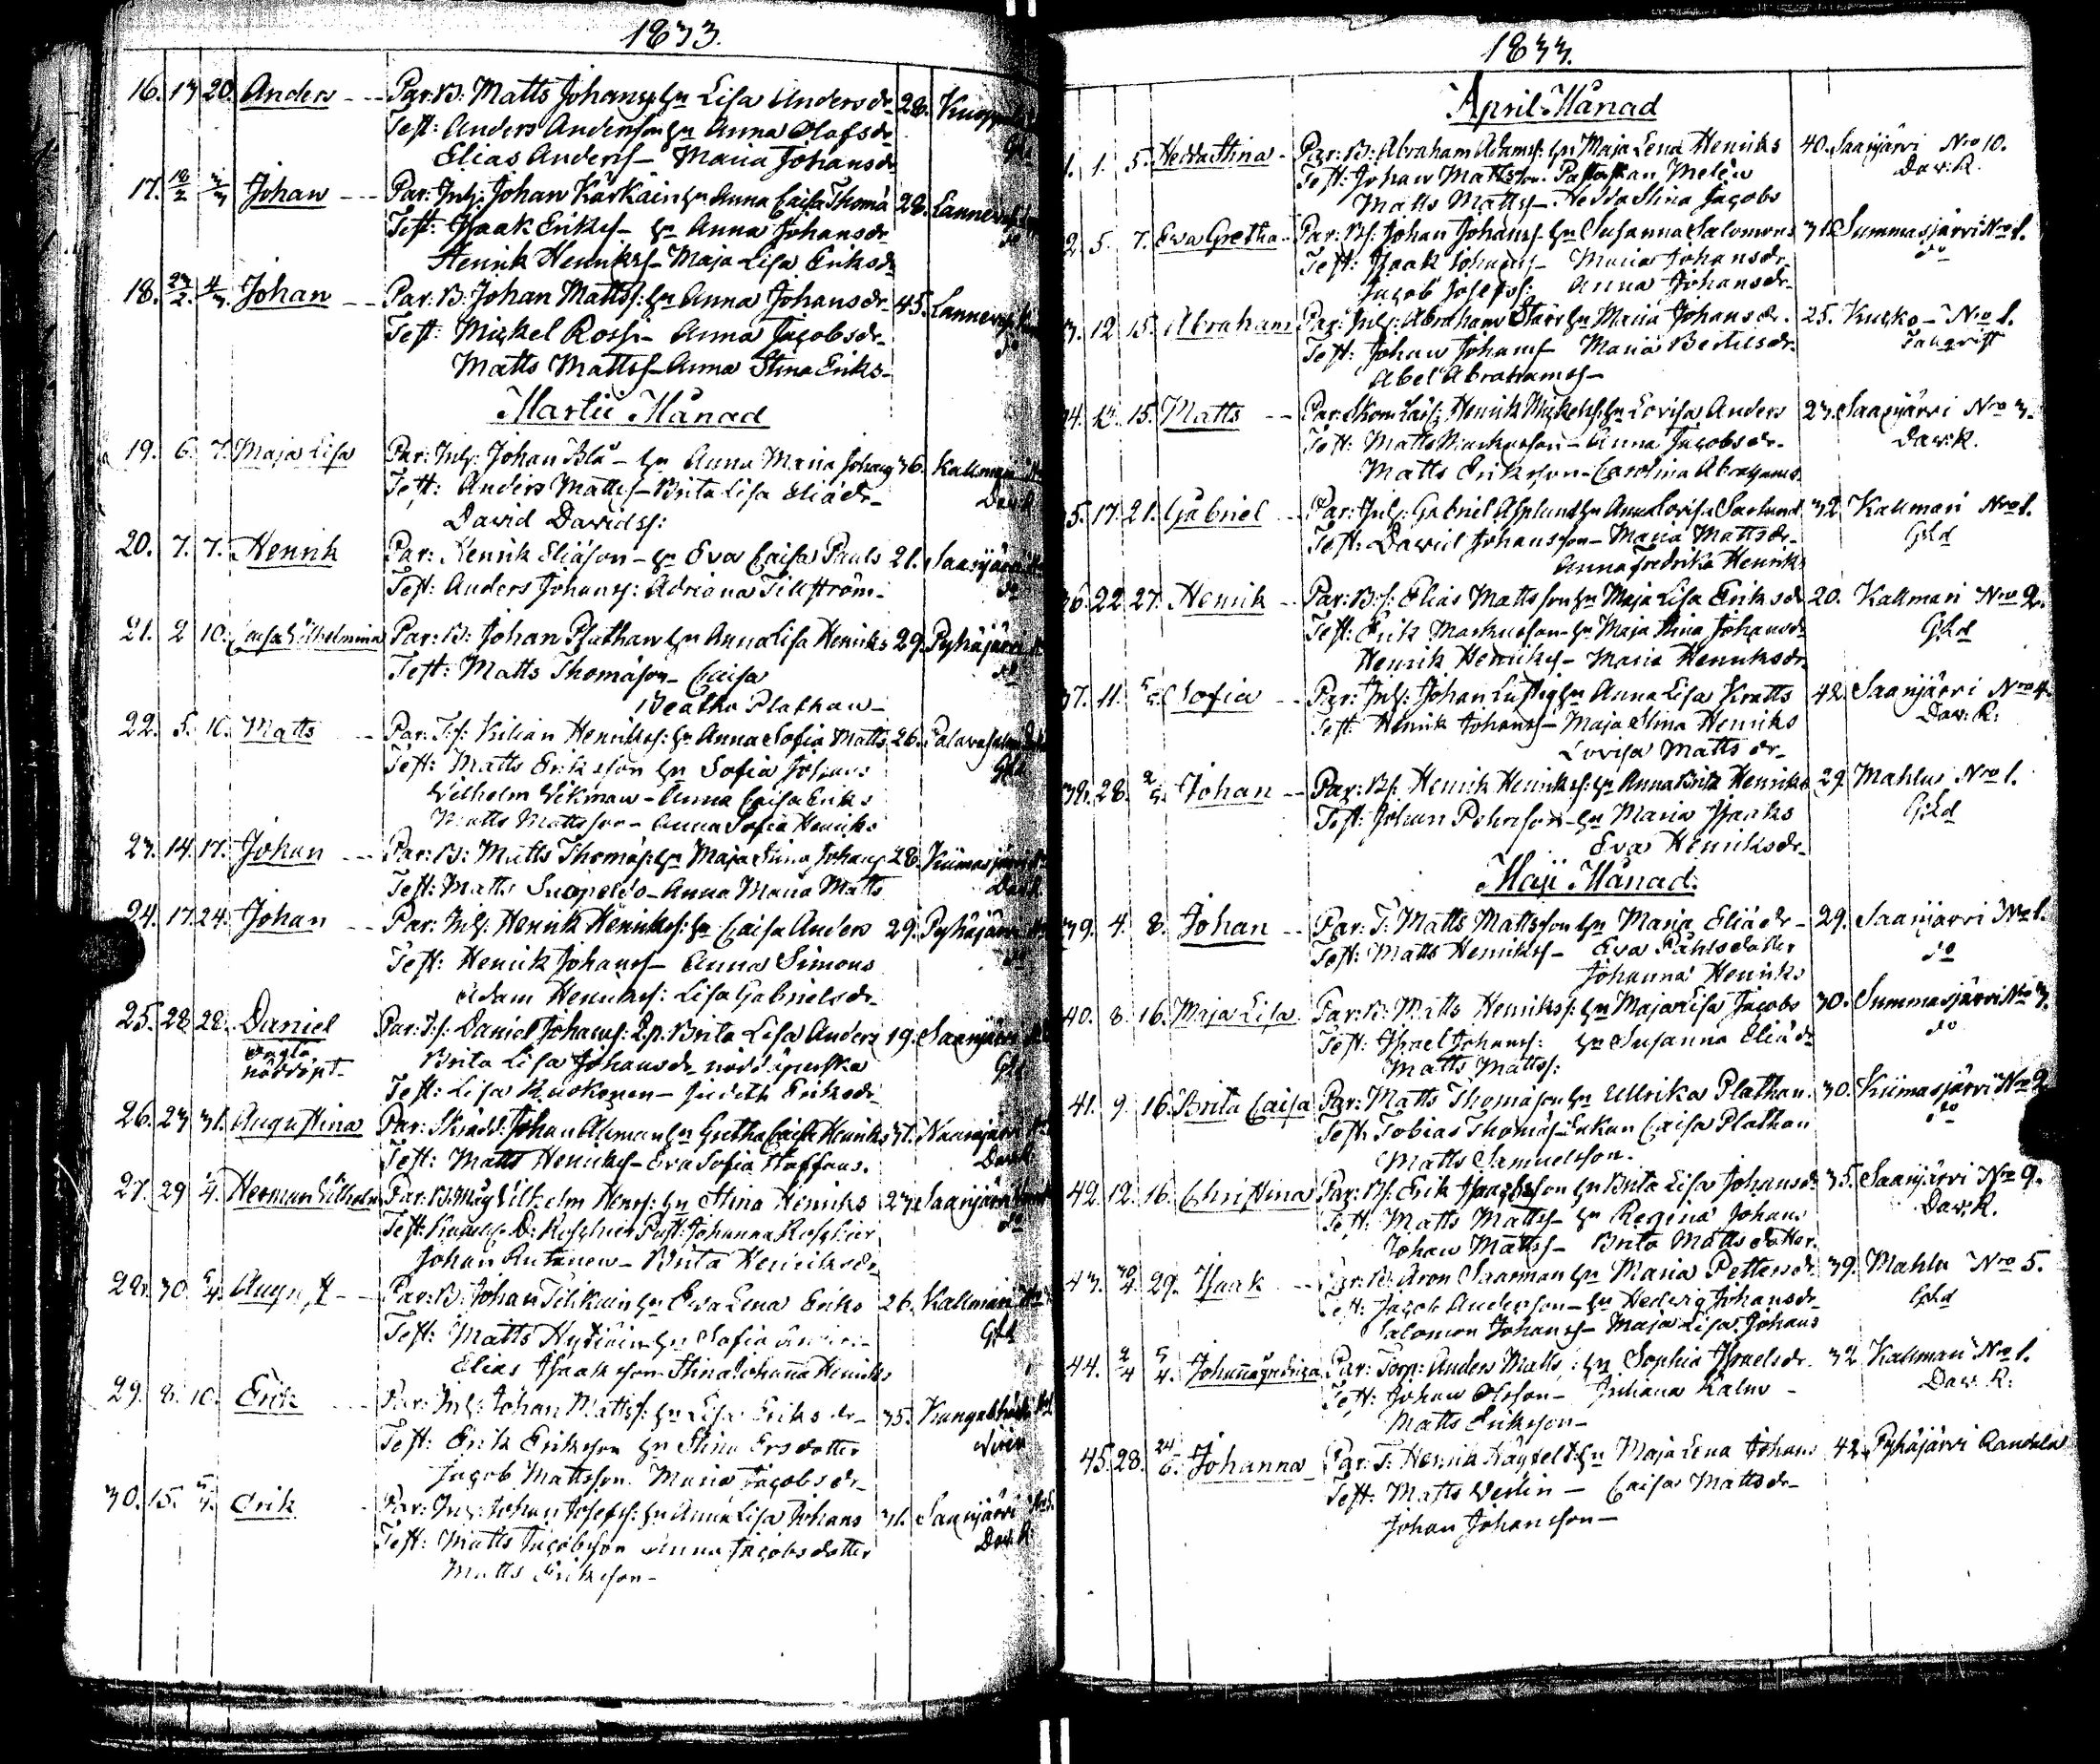 1833.
16. 13 20. Anders - - Par: B: Matts Johanss: hu Lisa Andersdr 28.
Test: Anders Anderson hu Anna Olofsdr
Elias Anderss- Maria Johansdr
17. 18/2 3/3 Johan - - Par: Inh: Johan Kärkäin hu Anna Caisa Thomä 28.
Test: Isaak Erikss- hu Anna Johansdr do
Henrik Henrikss- Maja Lisa Eriksdr
18. 23/2. 4/3. Johan - - Par: B: Johan Mattss: hu Anna Johansdr- 45.
Test: Mickel Rossi- Anna Jacobsdr- do
Matts Mattss- Anna Stina Eriks-
Martii Månad
19. 6. 7. Maja Lisa Par: Inh: Johan Blå- hu Anna Maria Johans 36. Kallmari
Test: Anders Mattss- Brita Lisa Eliädr- Dav: R
David Davidss:
20. 7. 7. Henrik Par: Henrik Eliäson- hu Eva Caisa Pauls 21. Saarijärvi
Test: Anders Johanss: Adriana Tillström- do
21. 2 10. Caisa Wilhelmina Par: B: Johan Plathan hu Anna Lisa Henriks 29. Pyhäjärvi
Test: Matts Thomäson- Caisa do
Beatha Plathan-
22. 5. 10. Matts - Par: T:s: Kilian Henrikss: hu Anna Sofia Matts 26.
Test: Matts Eriksson hu Sofia Johans G:ld
Wilhelm Wikman- Anna Caisa Eriks
Matts Mattsson- Anna Sofia Henriks
23. 14. 17. Johan - - Par: B: Matts Thomäs: hu Maja Stina Johans 28. Kiimasjärvi
Test: Matts - Anna Maria Matts Dav: R
24. 17. 24. Johan - - Par: Inh: Henrik Henrikss: hu Caisa Anders 29. Pyhäjärvi
Test: Henrik Johanss- Anna Simons do
Adam Henrikss: Lisa Gabrielsdr-
25. 28 28. Daniel Par: T:s: Daniel Johanss: Brita Lisa Anders 19. Saarijärvi
nöddöpt- Brita Lisa Johansdr nöddöperska G:ld
Test: Lisa Ruokonen- Judith Eriksdr
26. 23 31. Augustina Par: Skrädd: Johan Ahman hu Gretha Caisa Henriks 31. Naarajärvi
Test: Matts Henrikss- Eva Sofia Staffans. Dav: R
27. 29 1/4. Herman Wilhelm Par: B: Måg Wilhelm Henrs: hu Stina Henriks 23. Saarijärvi
Test: D: Roschier Johanna Roschier do
Johan Antonen- Brita Henriksdr
28. 30 5/4. August - - Par: B: Johan Tilikain hu Eva Lena Eriks 26. Kallmari
Test: Matts Hytiäin hu Sofia G:ld
Elias Isaaksson- Stina Johanna Henriks
29. 8. 10. Erik - - Par: Inh: Johan Mattss: hu Lisa Eriksdr- 35.
Test: Erik Eriksson hu Stina Ersdotter
Jacob Mattsson. Maria Jacobsdr-
30. 15. 5/4. Erik - Par: Inh: Johan Josefss: hu Anna Lisa Johans 31. Saarijärvi
Test: Matts Jacobson Anna Jacobsdotter Dav: R
Matts Eriksson-
1833.
April Månad
1. 1. 5. Hedda Stina- Par: B: Abraham Adamss: hu Maja Lena Henriks 40. Saarijärvi No 10.
Test: Johan Mattsson. Melén Dav: R.
Matts Mattss- Hedda Stina Jacobs
2. 5. 7. Eva Gretha- Par: Bs: Johan Johanss- hu Susanna Salomons 31. Summasjärvi No 1.
Test: Isaak Johanss- Maria Johansdr- do
Jacob Josefss: Anna Johansdr-
3. 12 15. Abraham Par: Inh: Abraham Starr hu Maria Johansdr. 25. Kusko- No 1.
Test: Johan Johanss- Maria Bertilsdr-
Abel Abrahamss-
4. 12. 15. Matts - - Par: Henrik Mickelss: hu Lovisa Anders 23. Saarijärvi No 3.
Test: Matts Markusson- Anna Jacobsdr- Dav: R.
Matts Eriksson- Carolina Abrahams
35. 17. 21. Gabriel - - Par: Inh: Gabriel Asplund hu Anna Lovisa 32 Kallmari No 1.
Test: David Johansson- Maria Mattsdr- G:ld
Anna Fredrika Henriks
36. 22. 27. Henrik - - Par: B:s: Elias Mattsson hu Maja Lisa Eriksdr 20. Kallmari No 2.
Test: Erik Markusson- hu Maja Stina Johansdr G:ld
Henrik Henrikss- Maria Henriksdr
37. 11. 5/5. Sofia - - Par: Inh: Johan Lustig hu Anna Lisa Kratts 42. Saarijärvi No 4.
Test: Henrik Johanss- Maja Stina Henriks Dav: R:
Lovisa Mattsdr-
38. 28. 2/5. Johan - - Par: Bs: Henrik Henrikss: hu Anna Brita Henriks 29. Mahlu No 1.
Test: Johan Petersson- hu Maria Isaaks G:ld
Eva Henriksdr-
Maji Månad.
39. 4. 8. Johan - - Par: T: Matts Mattsson hu Maria Eliädr- 29. Saarijärvi No 1.
Test: Matts Henrikss- Eva Påhlsdotter do
Johanna Henriks
40. 8. 16. Maja Lisa. Par: B: Matts Henrikss: hu Maja Lisa Jacobs 30. Summasjärvi No 3.
Test: Israel Johanss: hu Susanna Eliädr do
Matts Mattss:
41. 9. 16. Brita Caisa Par: Matts Thomäson hu Ullrika Plathan. 30. Kiimasjärvi No 2
Test: Tobias Thomäs- Enkan Caisa Plathan do
Matts Samuelsson.
42. 12. 16. Christina Par: Bs: Erik Isaaksson hu Brita Lisa Johansdr 35. Saarijärvi No 9.
Test: Matts Mattss- hu Regina Johans Dav: R.
Johan Mattss- Brita Mattsdotter.
43. 30/4. 29. Isaak - - Par: B: Aron Saarman hu Maria Pettersdr 39. Mahlu No 5.
Test: Jacob Anderson- hu Hedvig Johansdr- G:ld
Salomon Johanss- Maja Lisa Johans
44. 2/4 5/4. Johanna Fredrika Par: Torp: Anders Matts: hu Sophia Israelsdr. 32 Kallmari No 1.
Test: Johan Olsson- Juliana Kalm- Dav: R:
Matts Eriksson-
45. 28. 24/6. Johanna Par: T: Henrik Häyfelt: hu Maja Lena Johans 42. Pyhäjärvi Randala
Test: Matts Verlin- Caisa Mattsdr-
Johan Johansson-